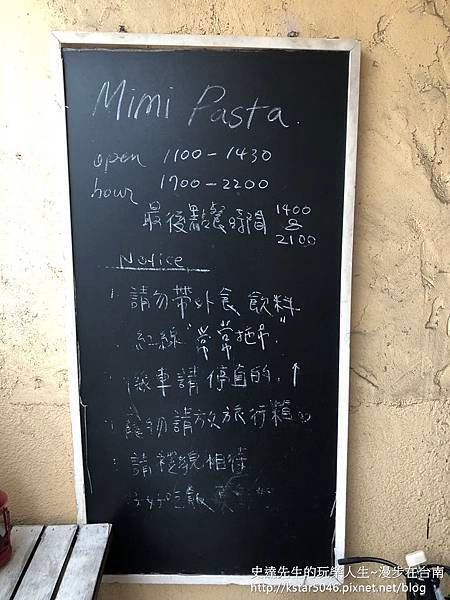 Mimi Pasta.
open 1100-1430
hour 1700-2200
最後點餐時間 1400 & 2100
Notice
請勿帶外食 飲料
紅線"常常拖吊"
機車請停直的 ↑
寵物請放旅行箱
請禮貌相待
好好吃飯
史達先生的玩樂人生~漫步在台南
http://kstar5046.pixnet.net/blog